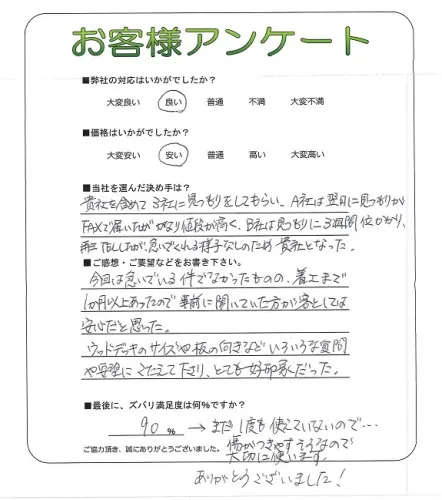 お客様アンケート
■弊社の対応はいかがでしたか?
大変良い 良い 普通 不満 大変不満
■価格はいかがでしたか?
大変安い 安い 普通 高い 大変高い
■当社を選んだ決め手は?
貴社を含めて3社に見つもりをしてもらい、A社は翌日に見つもりが
FAXで届いたがかなり値段が高く、B社は見つもりに3週間位かかり、
電話したが急いでくれる様子なしのため貴社となった。
■ご感想・ご要望などをお書き下さい。
今回は急いでいる件でなかったものの、着工まで
1か月以上あったので事前に聞いていた方が客としては
安心だと思った。
ウッドデッキのサイズや板の向きなどいろいろな質問
や要望にこたえて下さり、とても好印象だった。
■最後に、ズバリ満足度は何%ですか?
90 % → まだ1度も使えていないので…
傷がつきやすそうなので
ご協力頂き、誠にありがとうございました。 大切に使います。
ありがとうございました!